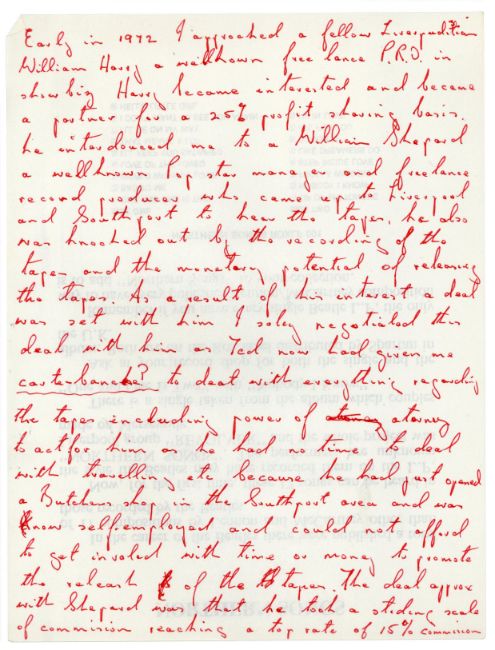 Early in 1972 I approached a fellow Liverpudlian
William Harry a wellknown free lance P.R.O. in
showbiz Harry became interested and became
a partner for a 25% profit sharing basis.
he interdouced me to a William Shepard
a wellknown Pop star manager and freelance
record producer who came up to Liverpool
and Southport to hear the tapes, he also
was knocked out by the recording of the
tapes and the monetary potental of releasing
the tapes As a result of his interest a deal
was set with him I soley negotiated this
deal with him. Ted now had given me
carterblanche? to deal with everything regarding
the tapes including power of atorney
to act for him as he had no time to deal
with travelling etc because he had just opened
a Butchers shop in the Southport area and was
know selfemployed and could not afford
to get involed with time or money to promote
the releash of the tapes. The deal approx
with Shepard was that he took a sliding scale
of commision reaching a top rate of 15% commision